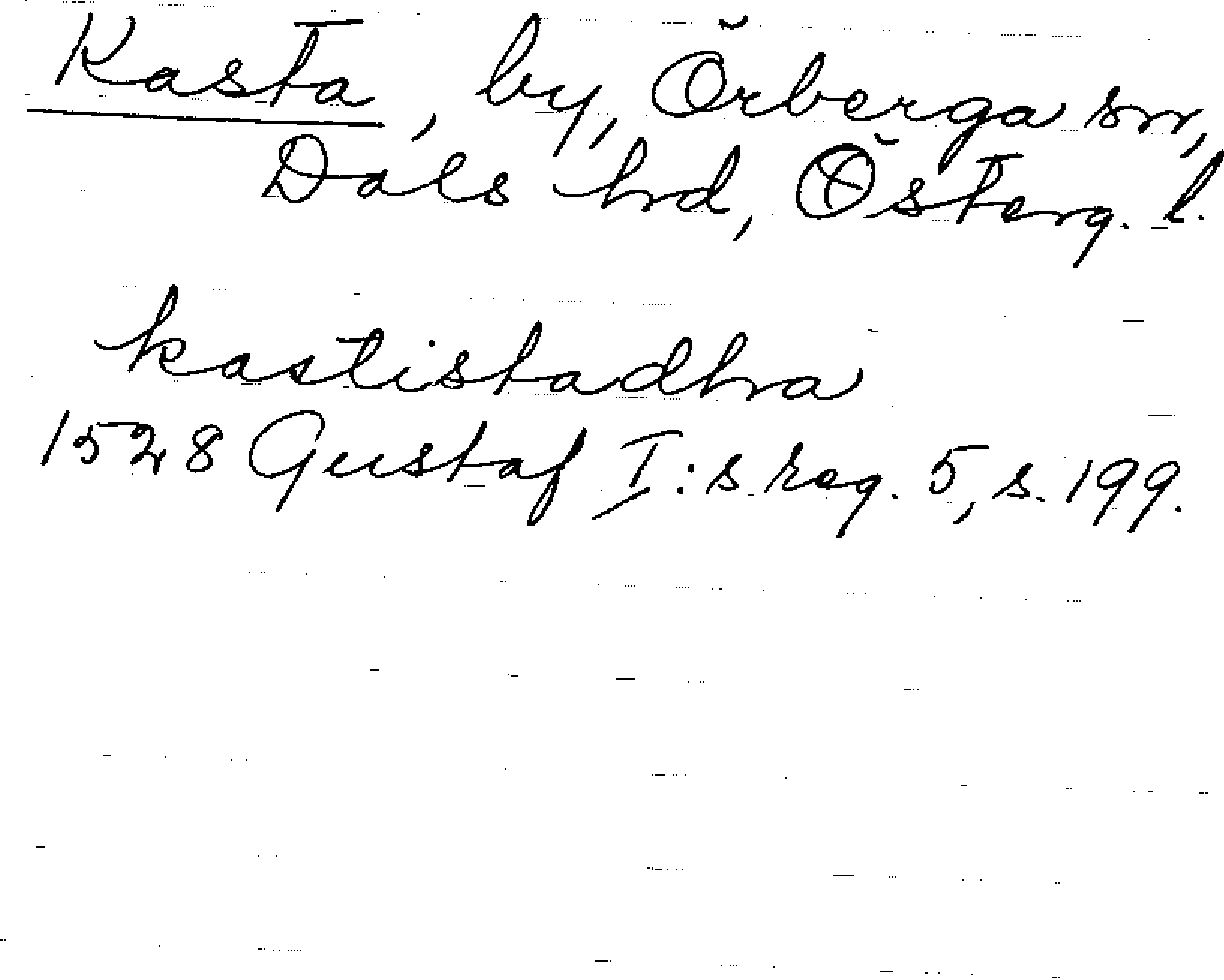 Kasta, by, Örberga sn,
Dals hd, Österg. l.
kastistadha
1528 Gustaf I:s reg. 5, s. 199.